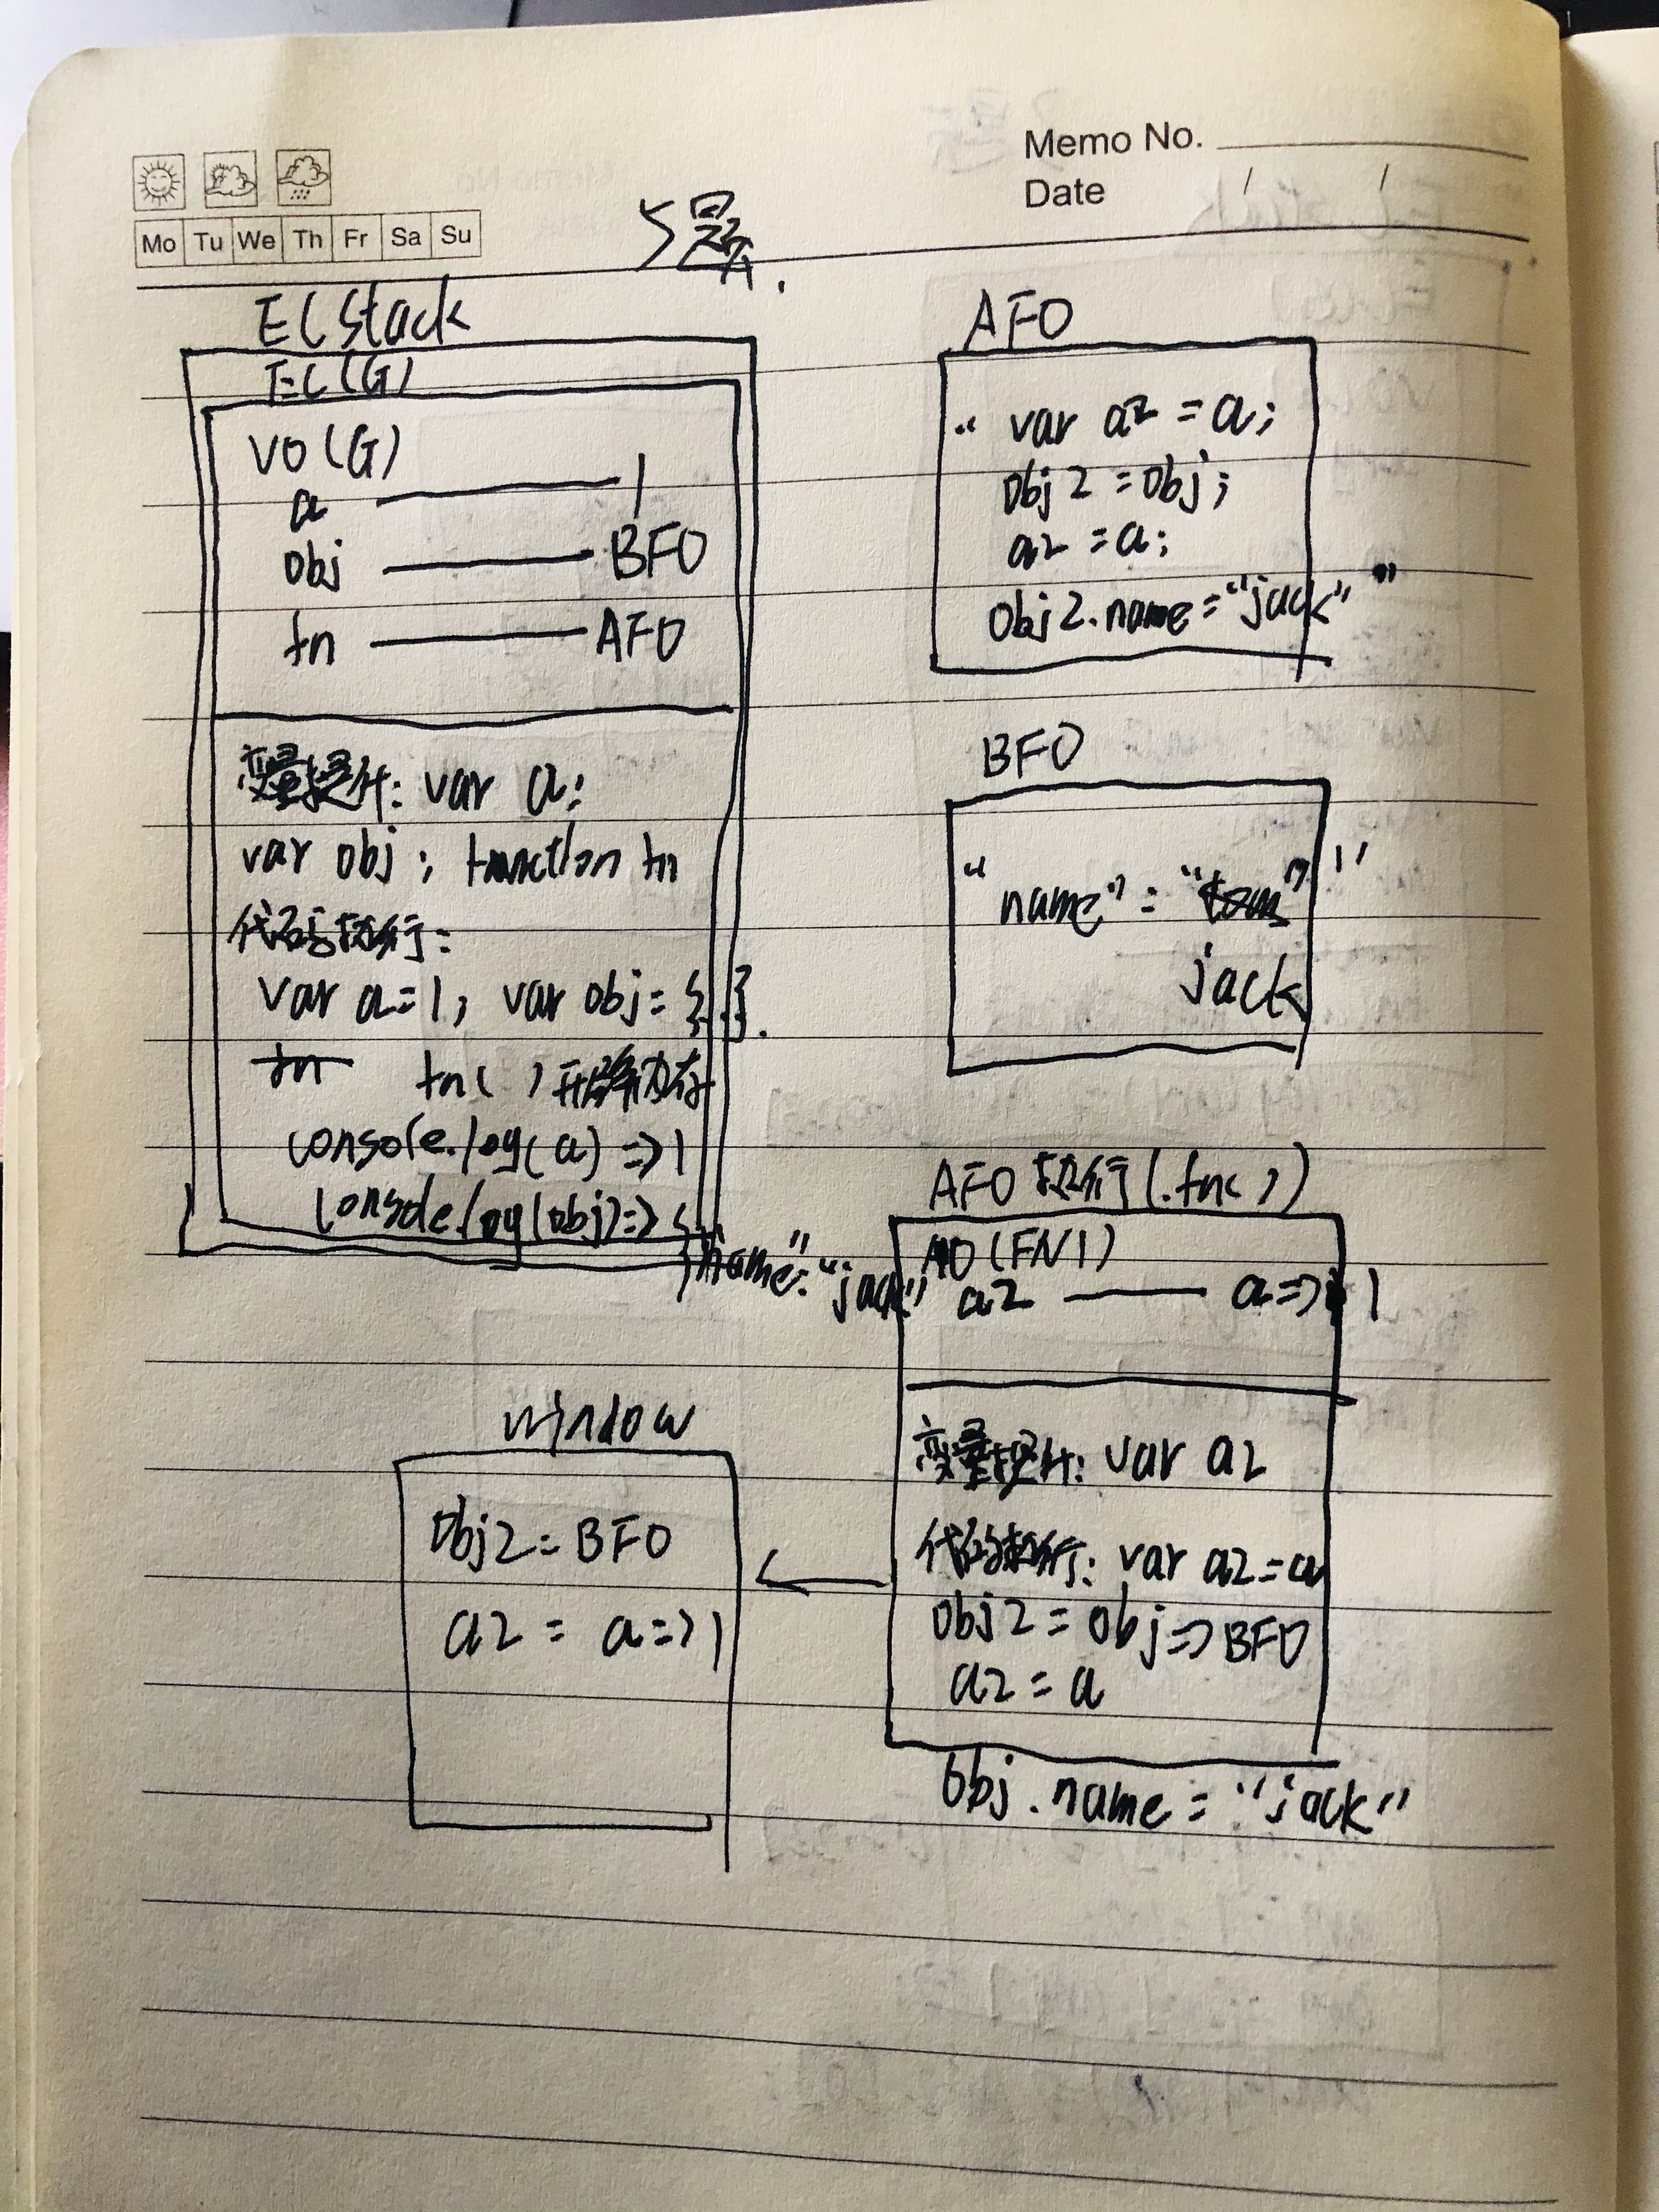 Memo No.
Date / /
Mo Tu We Th Fr Sa Su
5题.
ECStack
EC(G)
VO(G)
a —— 1
obj —— BFO
fn —— AFO
变量提升: var a;
var obj; function fn
代码执行:
var a=1, var obj={..}.
fn fn( ) 开辟内存
console.log(a) => 1
console.log(obj) => {
"name": "jack"
AFO
" var a2 = a;
obj2 = obj;
a2 = a;
obj2.name = "jack" "
BFO
" name" : "tom" "
jack
AFO 执行(.fn( )
AO(FN1)
a2 —— a => 1
变量提升: var a2
代码执行: var a2 = a
obj2 = obj => BFO
a2 = a
obj.name = "jack"
window
obj2 = BFO
a2 = a => 1